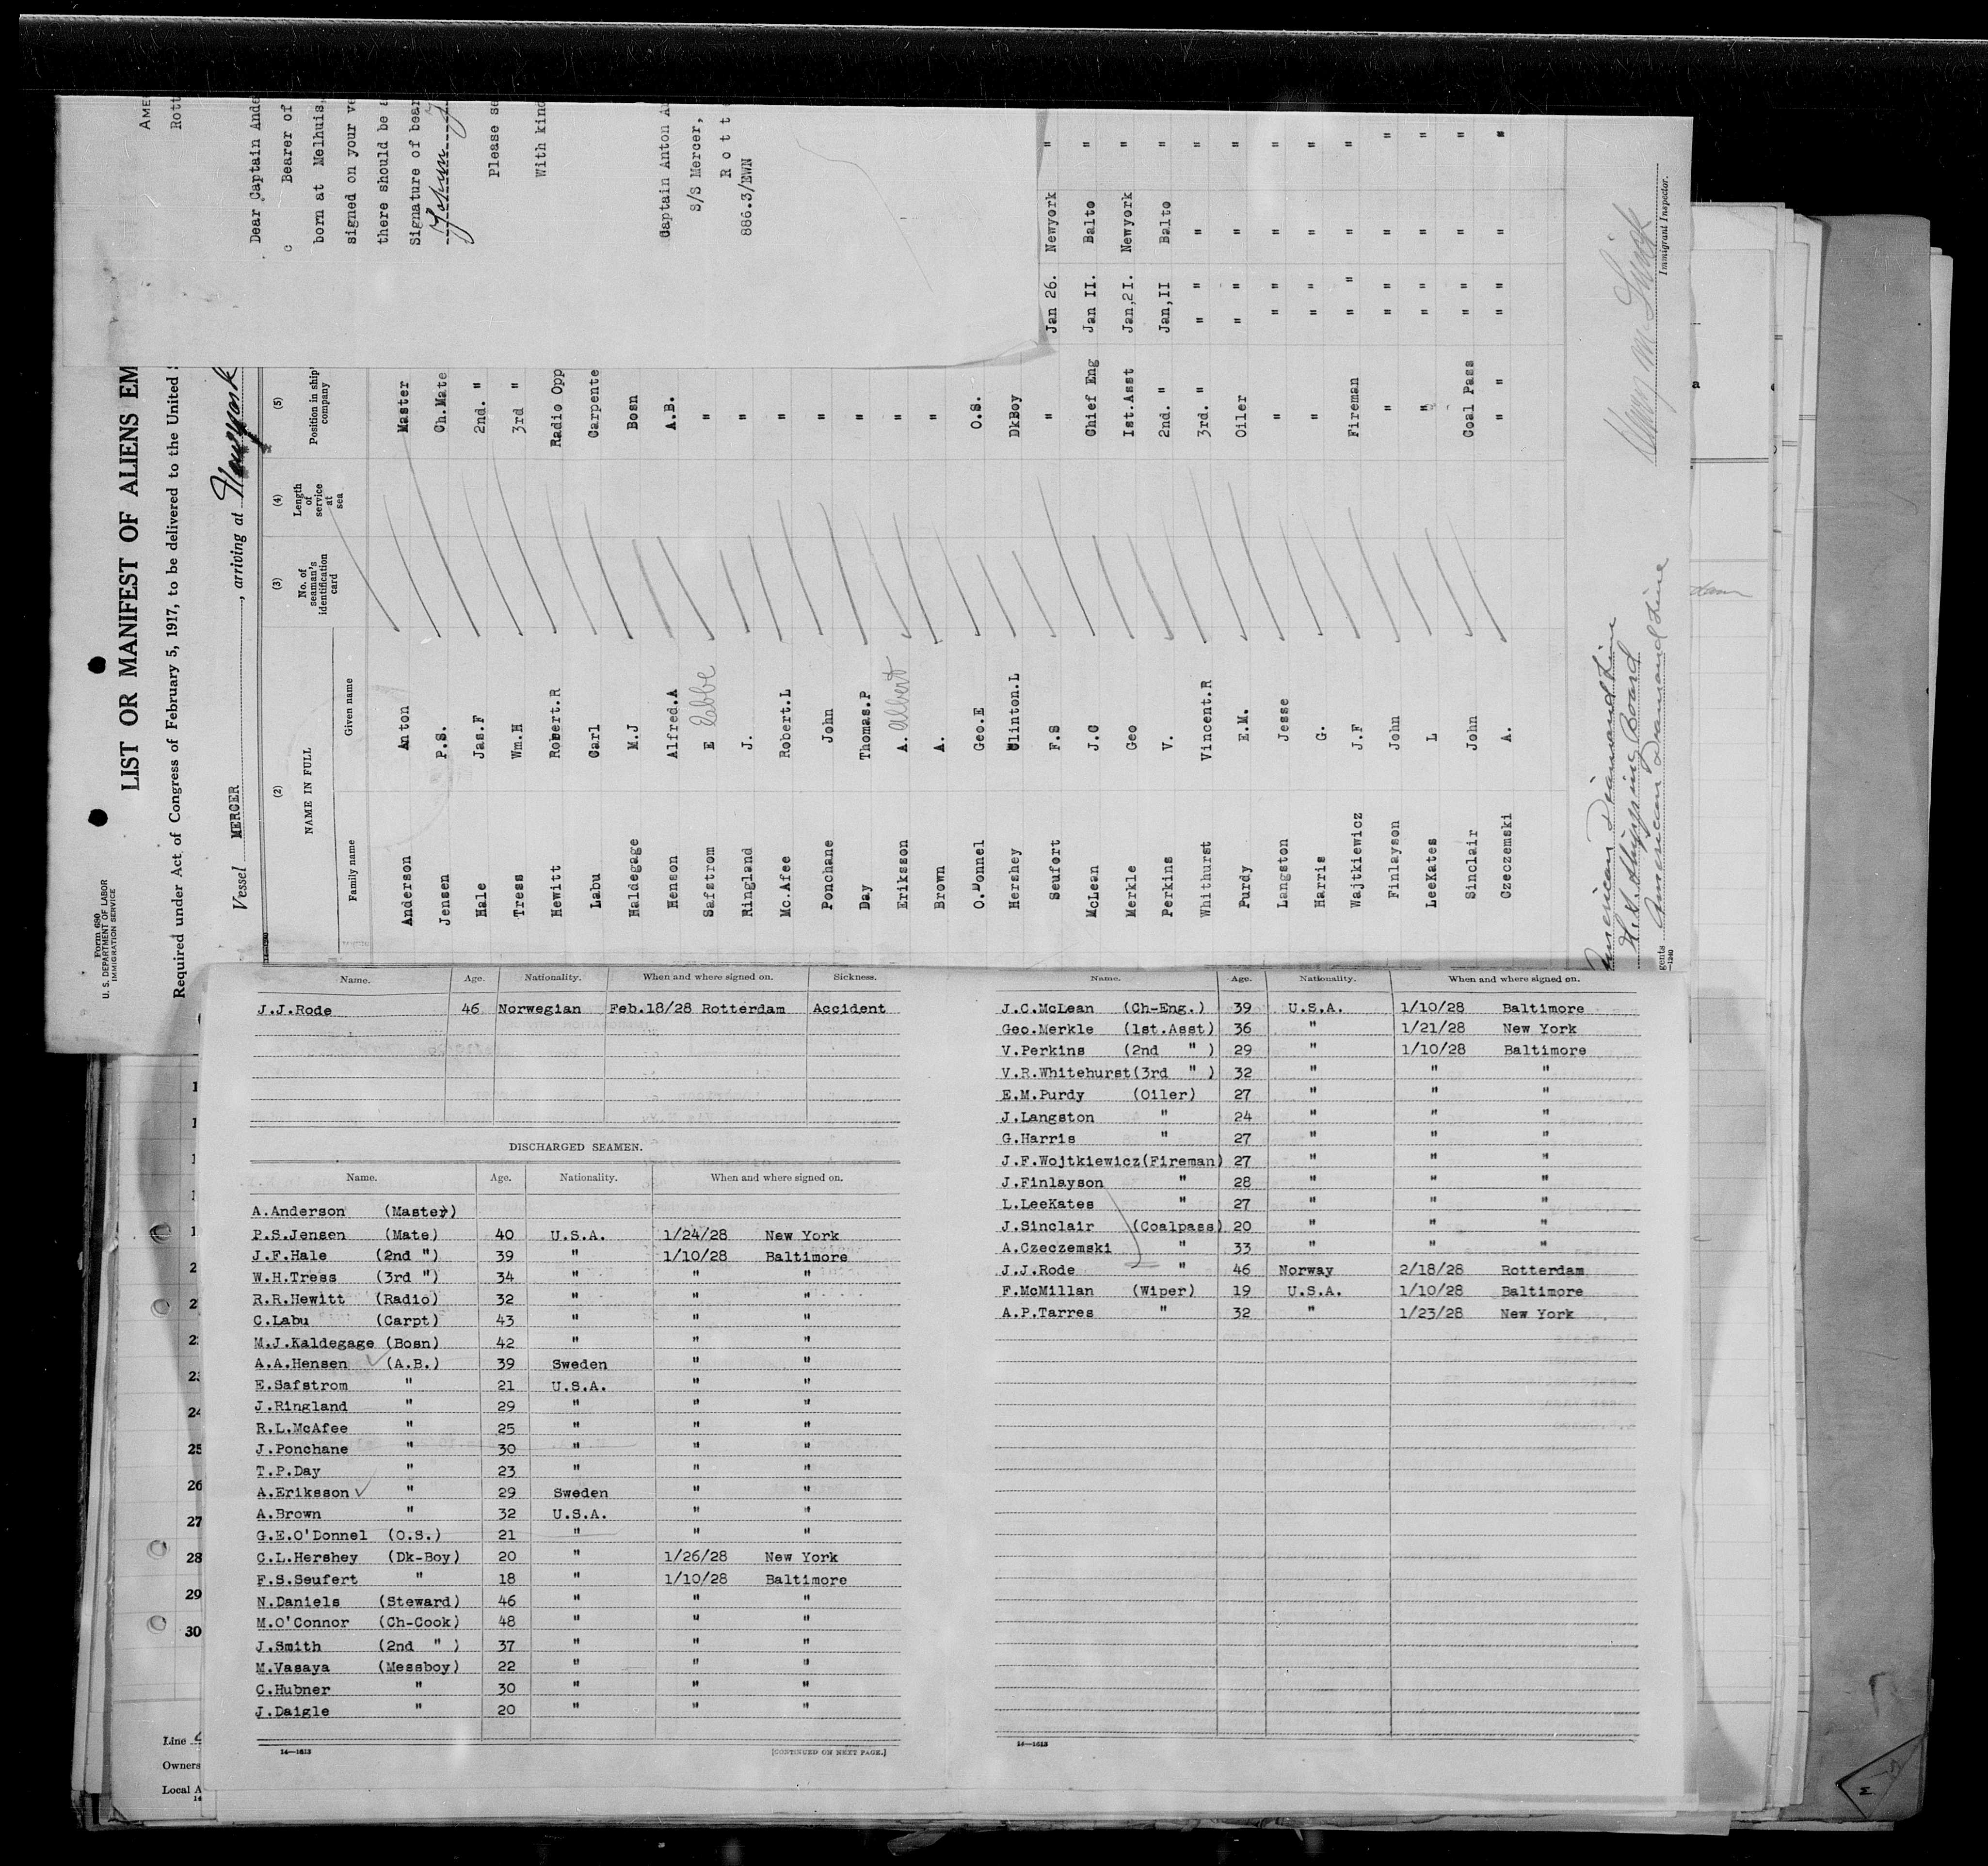 AME
Rott
Dear Captain Ande
Bearer of
born at Melhuis,
signed on your ve
there should be a
Signature of bear
Johan J
Please se
With kind
Captain Anton An
S/S Mercer,
R o t t
886.3/EWN
Form 680
U. S. DEPARTMENT OF LABOR
IMMIGRATION SERVICE
LIST OR MANIFEST OF ALIENS EM
Required under Act of Congress of February 5, 1917, to be delivered to the United S
Vessel MERCER, arriving at Newyork
(2) (3) (4) (5)
NAME IN FULL No. of seaman's identification card Length of service at sea Position in ship's company
Family name Given name
Anderson Anton Master
Jensen P.S. Ch.Mate
Hale Jas.F 2nd. "
Tress Wm.H 3rd "
Hewitt Robert.R Radio Opp
Labu Carl Carpente
Haldegage M.J Bosn
Henson Alfred.A A.B.
Safstrom E Ebbe "
Ringland J. "
Mc.Afee Robert.L "
Ponchane John "
Day Thomas.P "
Eriksson A. Albert "
Brown A. "
O.Donnel Geo.E O.S.
Hershey Clinton.L DkBoy
Seufert F.S " Jan 26. Newyork "
McLean J.C Chief Eng Jan II. Balto "
Merkle Geo Ist.Asst Jan,2I. Newyork "
Perkins V. 2nd. " Jan,II Balto "
Whithurst Vincent.R 3rd. " " " "
Purdy E.M. Oiler " " "
Langston Jesse " " " "
Harris G. " " " "
Wajtkiewicz J.F Fireman " " "
Finlayson John " " " "
LeeKates L " " " "
Sinclair John Coal Pass " " "
Czeczemski A. " " " " "
American Diamond Line
U.S. Shipping Board
gents American Diamond Line
Immigrant Inspector.
Name. Age. Nationality. When and where signed on. Sickness.
J.J.Rode 46 Norwegian Feb.18/28 Rotterdam Accident
DISCHARGED SEAMEN.
Name. Age. Nationality. When and where signed on.
A.Anderson (Master)
P.S.Jensen (Mate) 40 U.S.A. 1/24/28 New York
J.F.Hale (2nd ") 39 " 1/10/28 Baltimore
W.H.Tress (3rd ") 34 " " "
R.R.Hewitt (Radio) 32 " " "
C.Labu (Carpt) 43 " " "
M.J.Kaldegage (Bosn) 42 " " "
A.A.Hensen (A.B.) 39 Sweden " "
E.Safstrom " 21 U.S.A. " "
J.Ringland " 29 " " "
R.L.McAfee " 25 " " "
J.Ponchane " 30 " " "
T.P.Day " 23 " " "
A.Eriksson " 29 Sweden " "
A.Brown " 32 U.S.A. " "
G.E.O'Donnel (O.S.) 21 " " "
C.L.Hershey (Dk-Boy) 20 " 1/26/28 New York
F.S.Seufert " 18 " 1/10/28 Baltimore
N.Daniels (Steward) 46 " " "
M.O'Connor (Ch-Cook) 48 " " "
J.Smith (2nd " ) 37 " " "
M.Vasaya (Messboy) 22 " " "
C.Hubner " 30 " " "
J.Daigle " 20 " " "
14—1613 [CONTINUED ON NEXT PAGE.]
Name. Age. Nationality. When and where signed on.
J.C.McLean (Ch-Eng.) 39 U.S.A. 1/10/28 Baltimore
Geo.Merkle (1st.Asst) 36 " 1/21/28 New York
V.Perkins (2nd " ) 29 " 1/10/28 Baltimore
V.R.Whitehurst(3rd " ) 32 " " "
E.M.Purdy (Oiler) 27 " " "
J.Langston " 24 " " "
G.Harris " 27 " " "
J.F.Wojtkiewicz(Fireman) 27 " " "
J.Finlayson " 28 " " "
L.LeeKates " 27 " " "
J.Sinclair (Coalpass) 20 " " "
A.Czeczemski " 33 " " "
J.J.Rode " 46 Norway 2/18/28 Rotterdam
F.McMillan (Wiper) 19 U.S.A. 1/10/28 Baltimore
A.P.Tarres " 32 " 1/23/28 New York
14—1613
24
25
26
27
28
29
30
Line
Owners
Local A
14